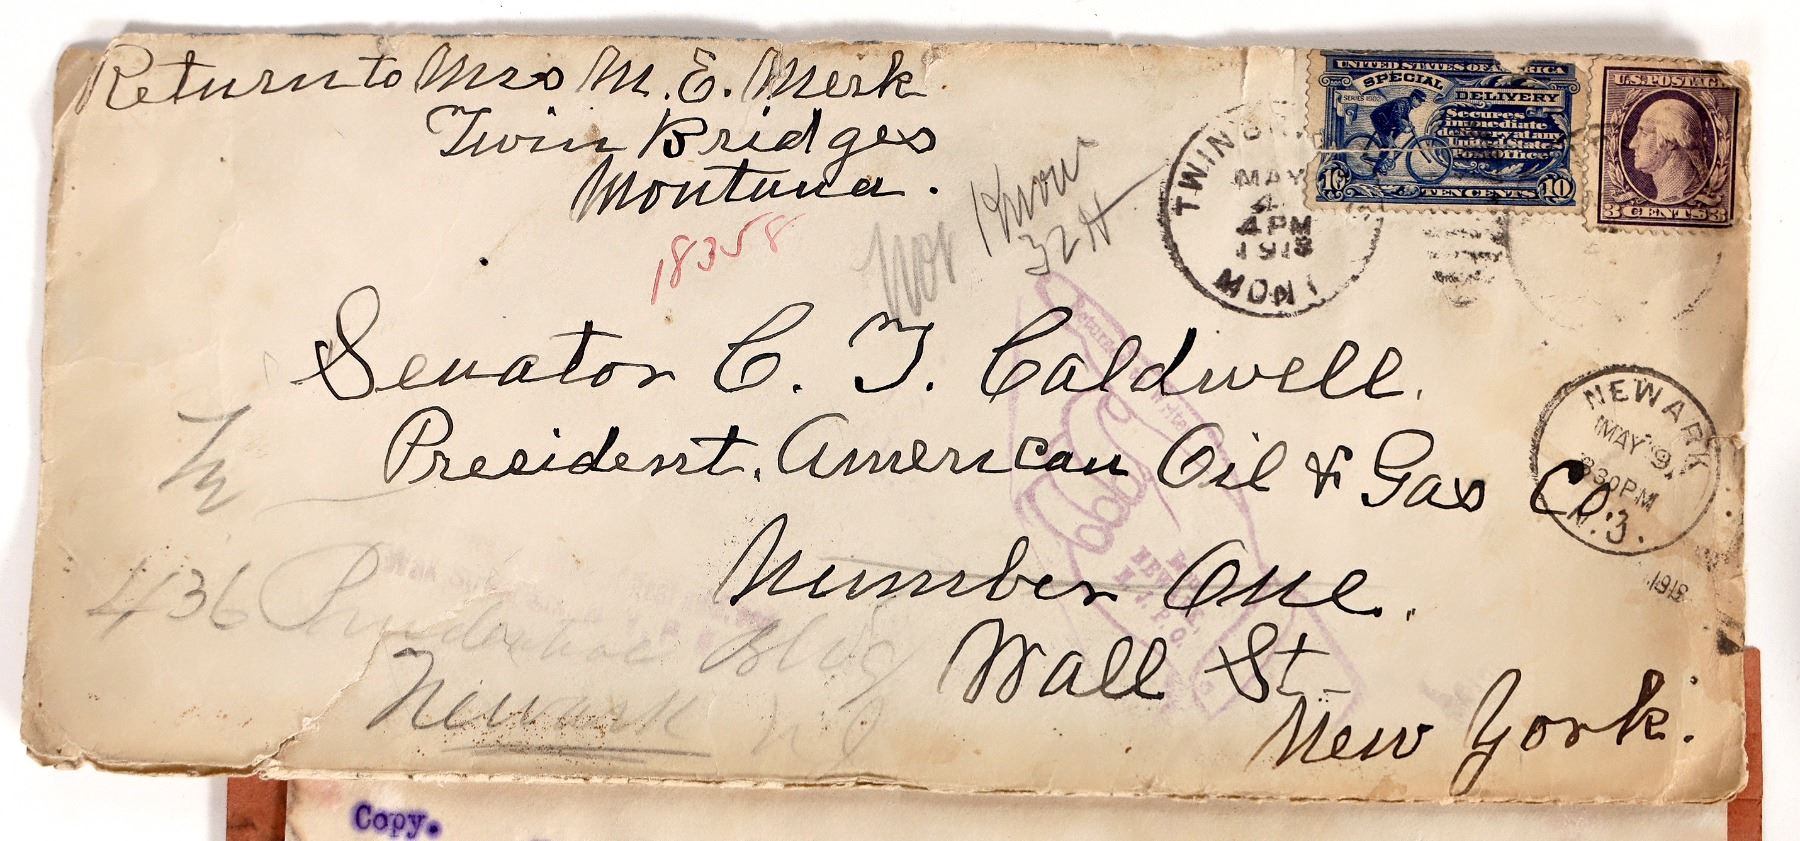 Return to Mrs M. E. Merk
Twin Bridges
Montana.
18358
Not Know
32 H
UNITED STATES OF AMERICA
SPECIAL
DELIVERY
SERIES 1902
Secures
immediate
delivery at any
United States
Post Office
10 TEN CENTS 10
U.S. POSTAGE
3 CENTS 3
TWIN
MAY
4
4 PM
1918
MONT
Senator C. T. Caldwell.
President, American Oil & Gas Co.
Number One.
Wall St
New York.
Try
436 Prudential Bldg
Newark NJ
NEWARK
MAY 9
830PM
N.J.
1918
Returned
Writer
NEWARK,
N.J. P.O.
Copy.